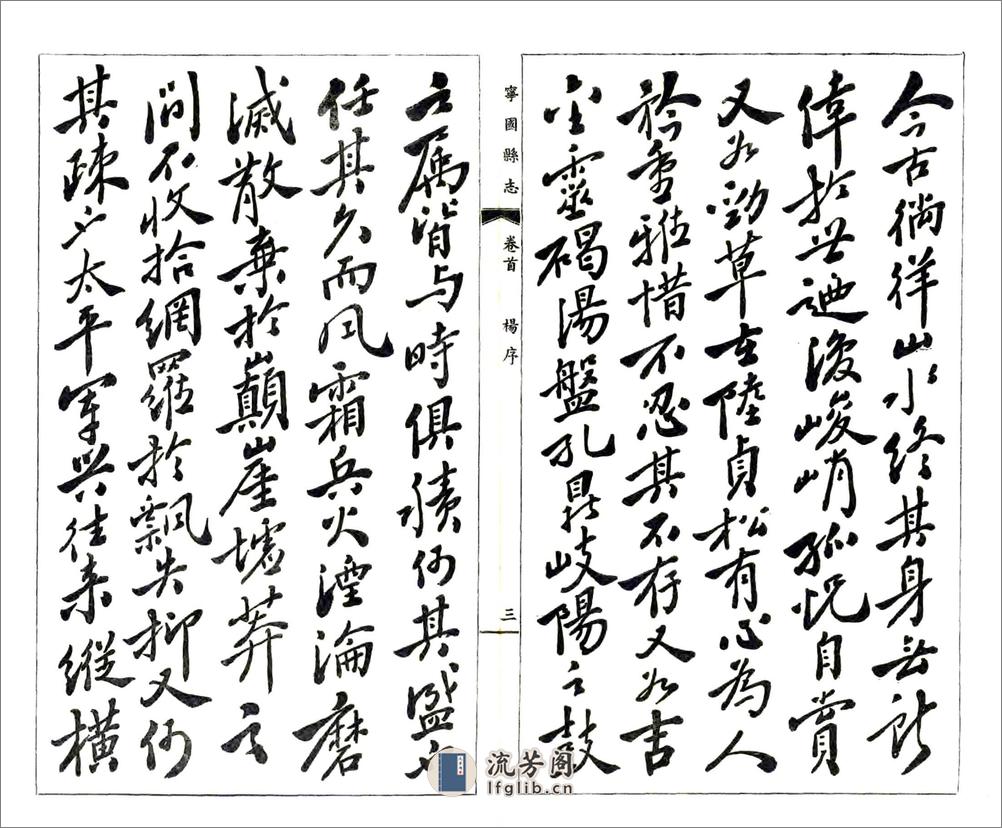 今古徜徉山水終其身無所
偉於世迺復峻峭孤悦自賞
又如勁草在陸貞松有心為人
矜重雅惜不忍其不存又如吉
金靈碣湯盤孔鼎岐陽之鼓
寧國縣志
卷首 楊序
三
之屬皆与時俱積何其盛也
任其久而風霜兵火湮淪磨
滅散棄於巔崖墟莽之
間不收拾網羅於飄失抑又何
其疎也太平軍興往來縱橫
流芳阁
lfglib.cn